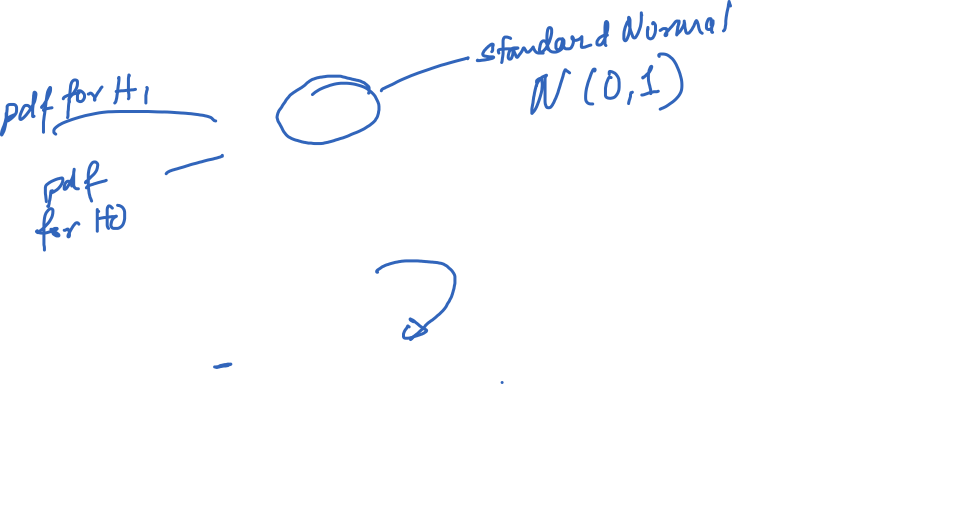 standard Normal
N (0,1)
pdf for H1
pdf
for H0